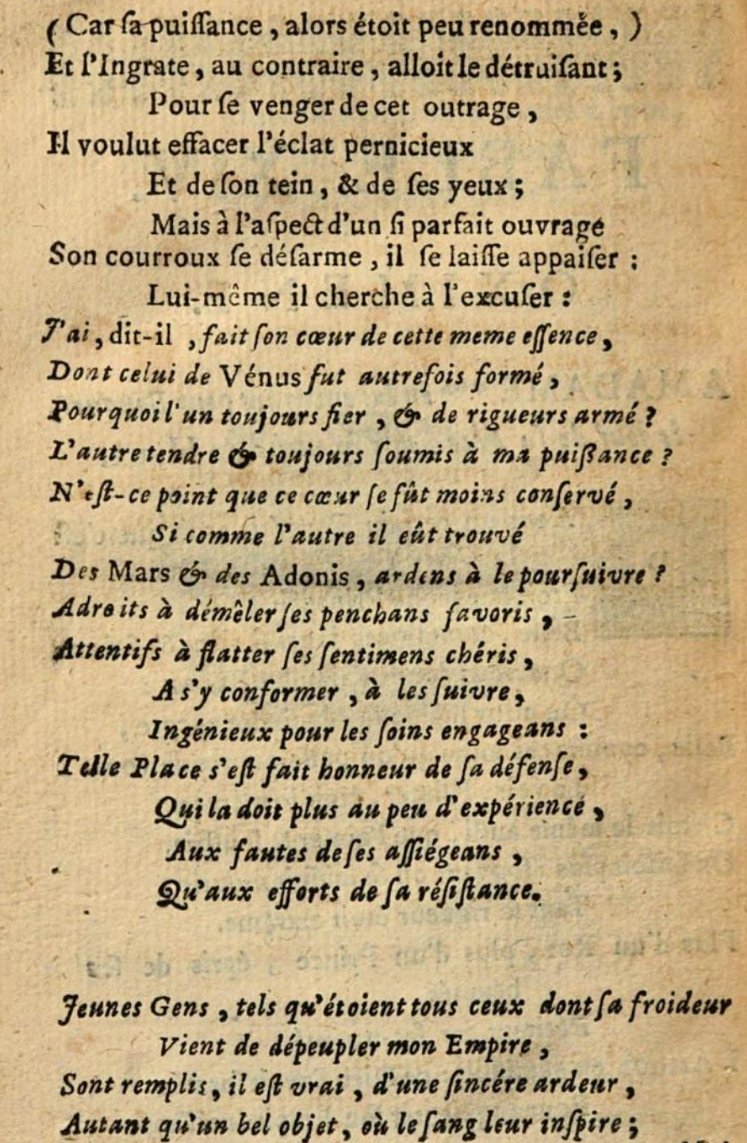 ( Car ſa puiſſance , alors étoit peu renommée , )
Et l'Ingrate , au contraire , alloit le détruiſant ;
Pour ſe venger de cet outrage ,
Il voulut effacer l'éclat pernicieux
Et de ſon tein , & de ſes yeux ;
Mais à l'aſpect d'un ſi parfait ouvrage
Son courroux ſe déſarme , il ſe laiſſe appaiſer :
Lui-même il cherche à l'excuſer :
J'ai , dit-il , fait ſon cœur de cette meme eſſence ,
Dont celui de Vénus fut autrefois formé ,
Pourquoi l'un toujours fier , & de rigueurs armé ?
L'autre tendre & toujours ſoumis à ma puiſſance ?
N'eſt-ce point que ce cœur ſe fût moins conſervé ,
Si comme l'autre il eût trouvé
Des Mars & des Adonis , ardens à le pourſuivre ?
Adroits à démêler ſes penchans favoris ,
Attentifs à flatter ſes ſentimens chéris ,
A s'y conformer , à les ſuivre ,
Ingénieux pour les ſoins engageans :
Telle Place s'eſt fait honneur de ſa défenſe ,
Qui la doit plus au peu d'expérience ,
Aux fautes de ſes aſſiégeans ,
Qu'aux efforts de ſa réſiſtance.
Jeunes Gens , tels qu'étoient tous ceux dont ſa froideur
Vient de dépeupler mon Empire ,
Sont remplis , il eſt vrai , d'une ſincére ardeur ,
Autant qu'un bel objet , où le ſang leur inſpire ;